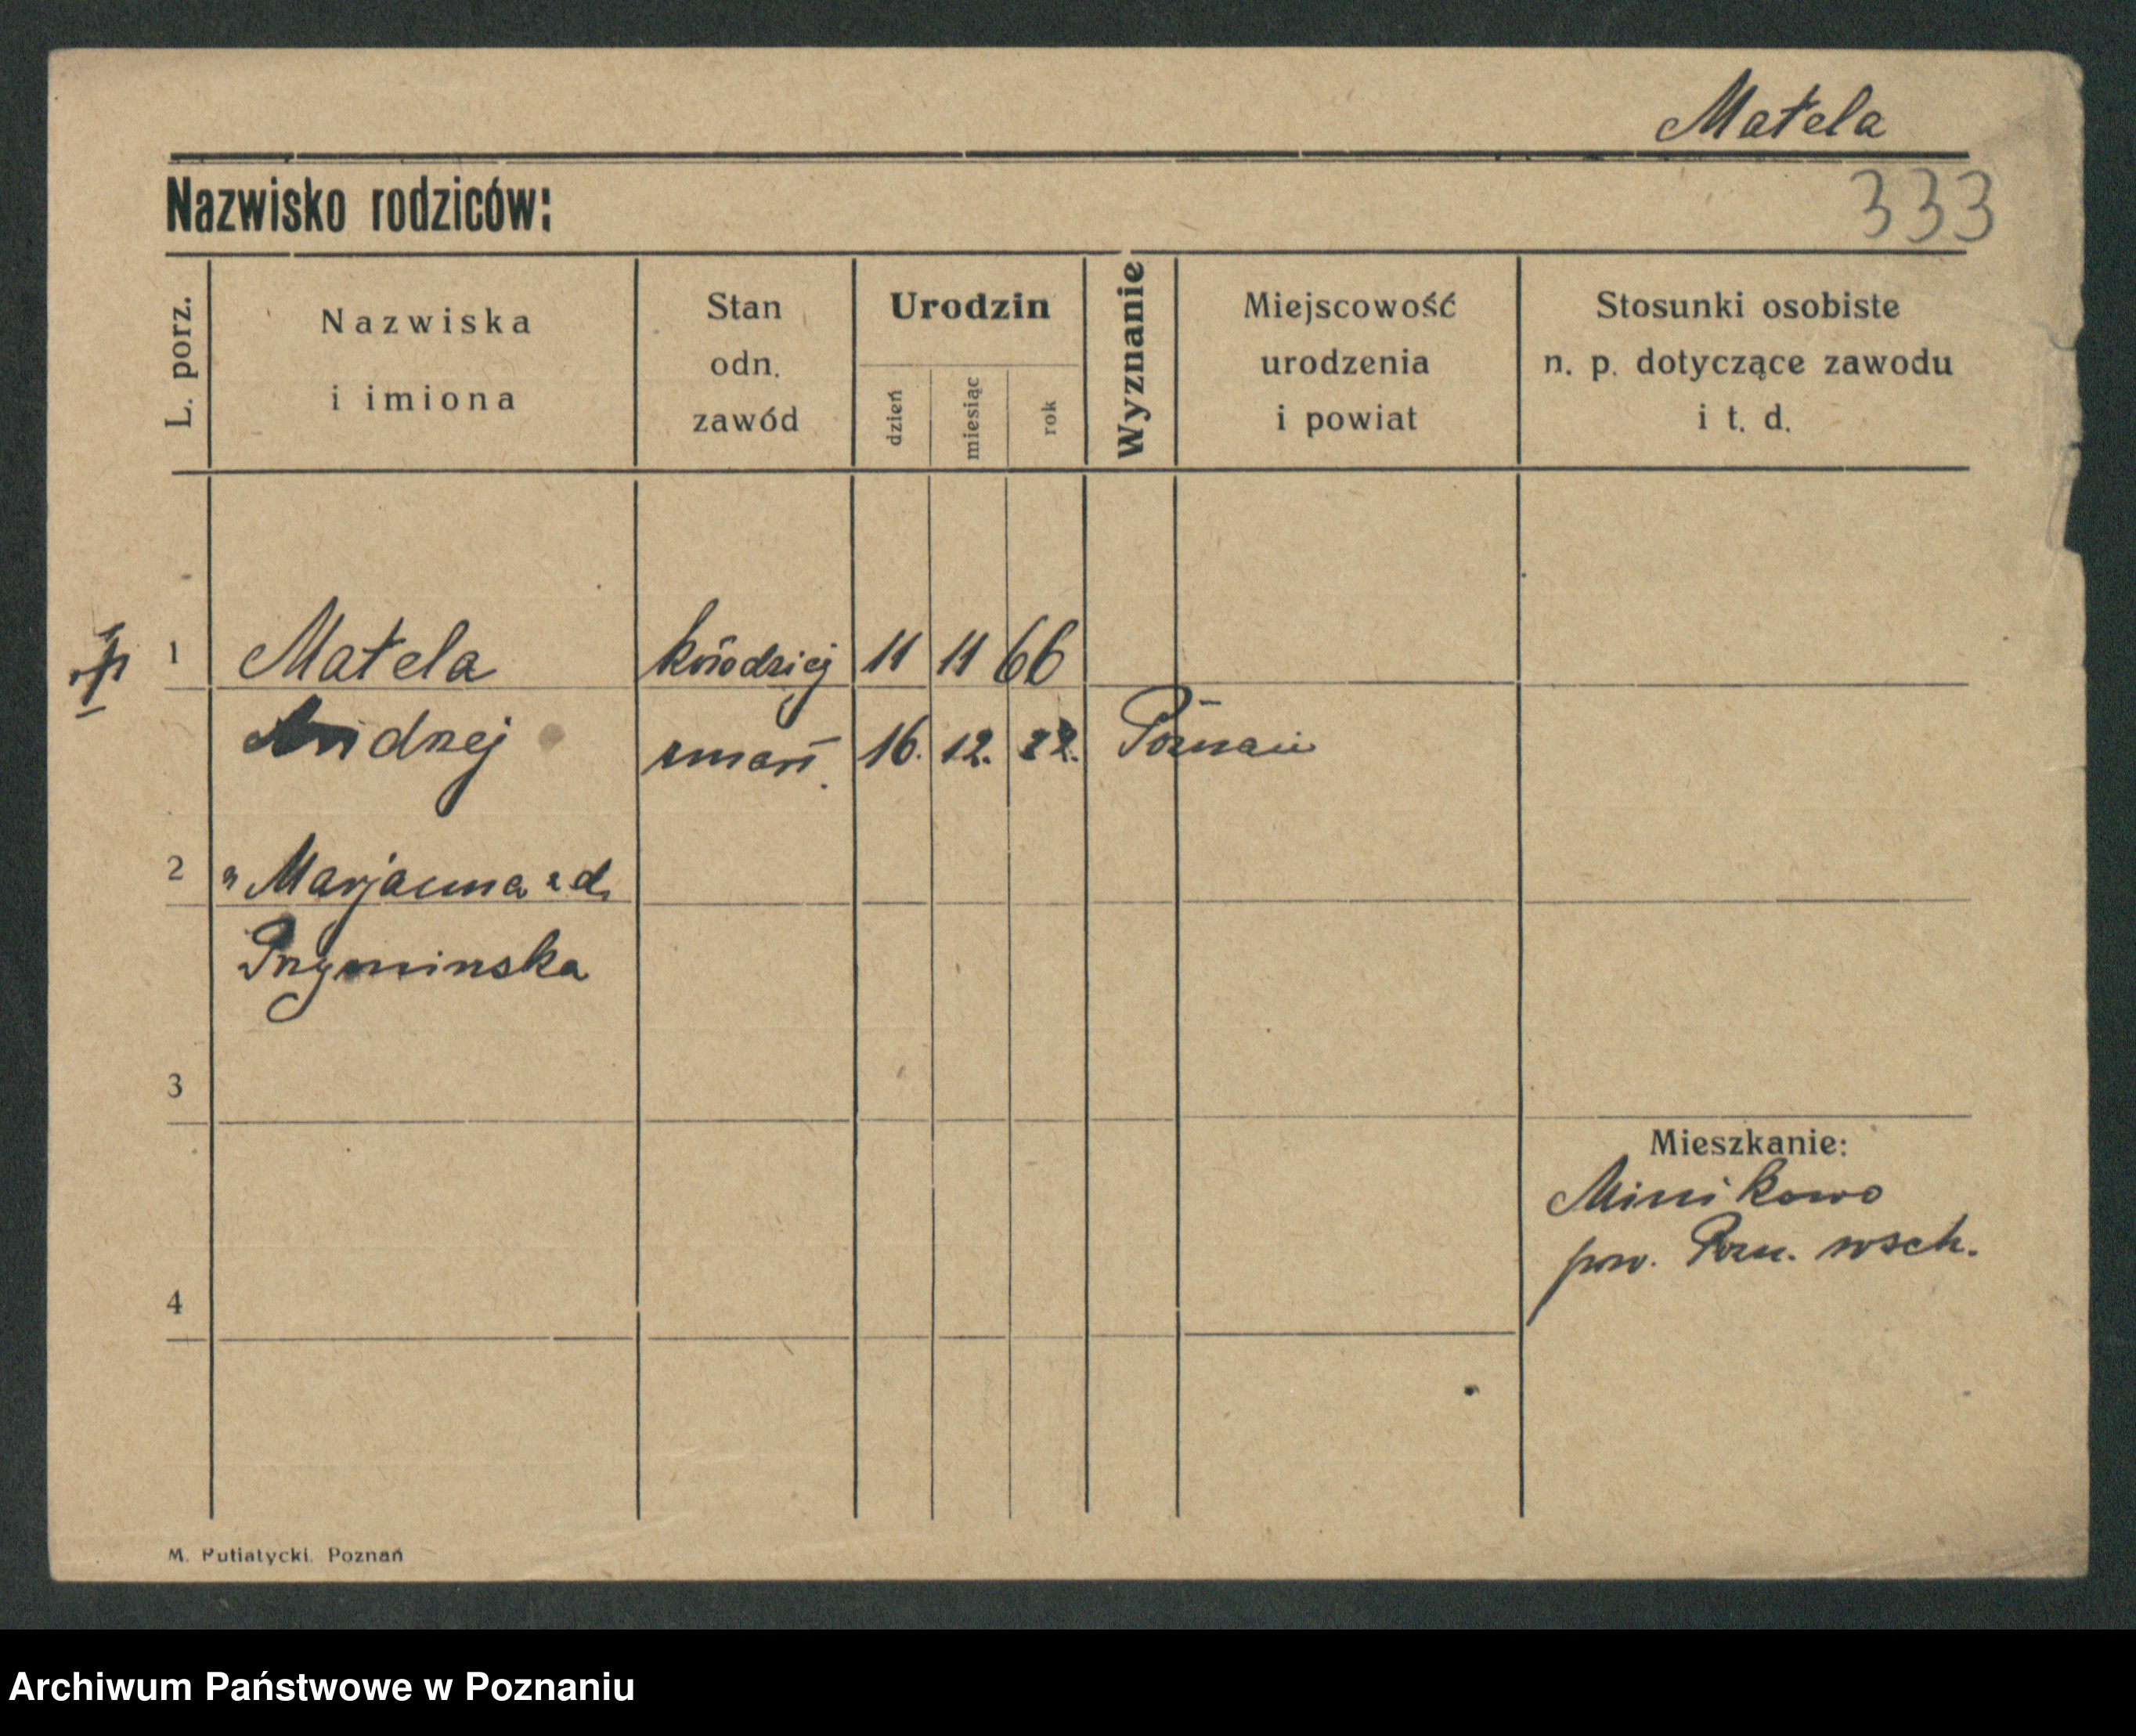 Matela
Nazwisko rodziców:
333
L. porz.
Nazwiska
i imiona
Stan
odn.
zawód
Urodzin
dzień
miesiąc
rok
Wyznanie
Miejscowość
urodzenia
i powiat
Stosunki osobiste
n. p. dotyczące zawodu
i t. d.
1 Matela kołodziej 11 11 66
Andrzej zmarł. 16. 12. 22. Poznań
2 " Marjanna z d.
Przyminska
3
Mieszkanie:
Minikowo
pow. Pozn. wsch.
4
M. Putiatycki. Poznań
Archiwum Państwowe w Poznaniu